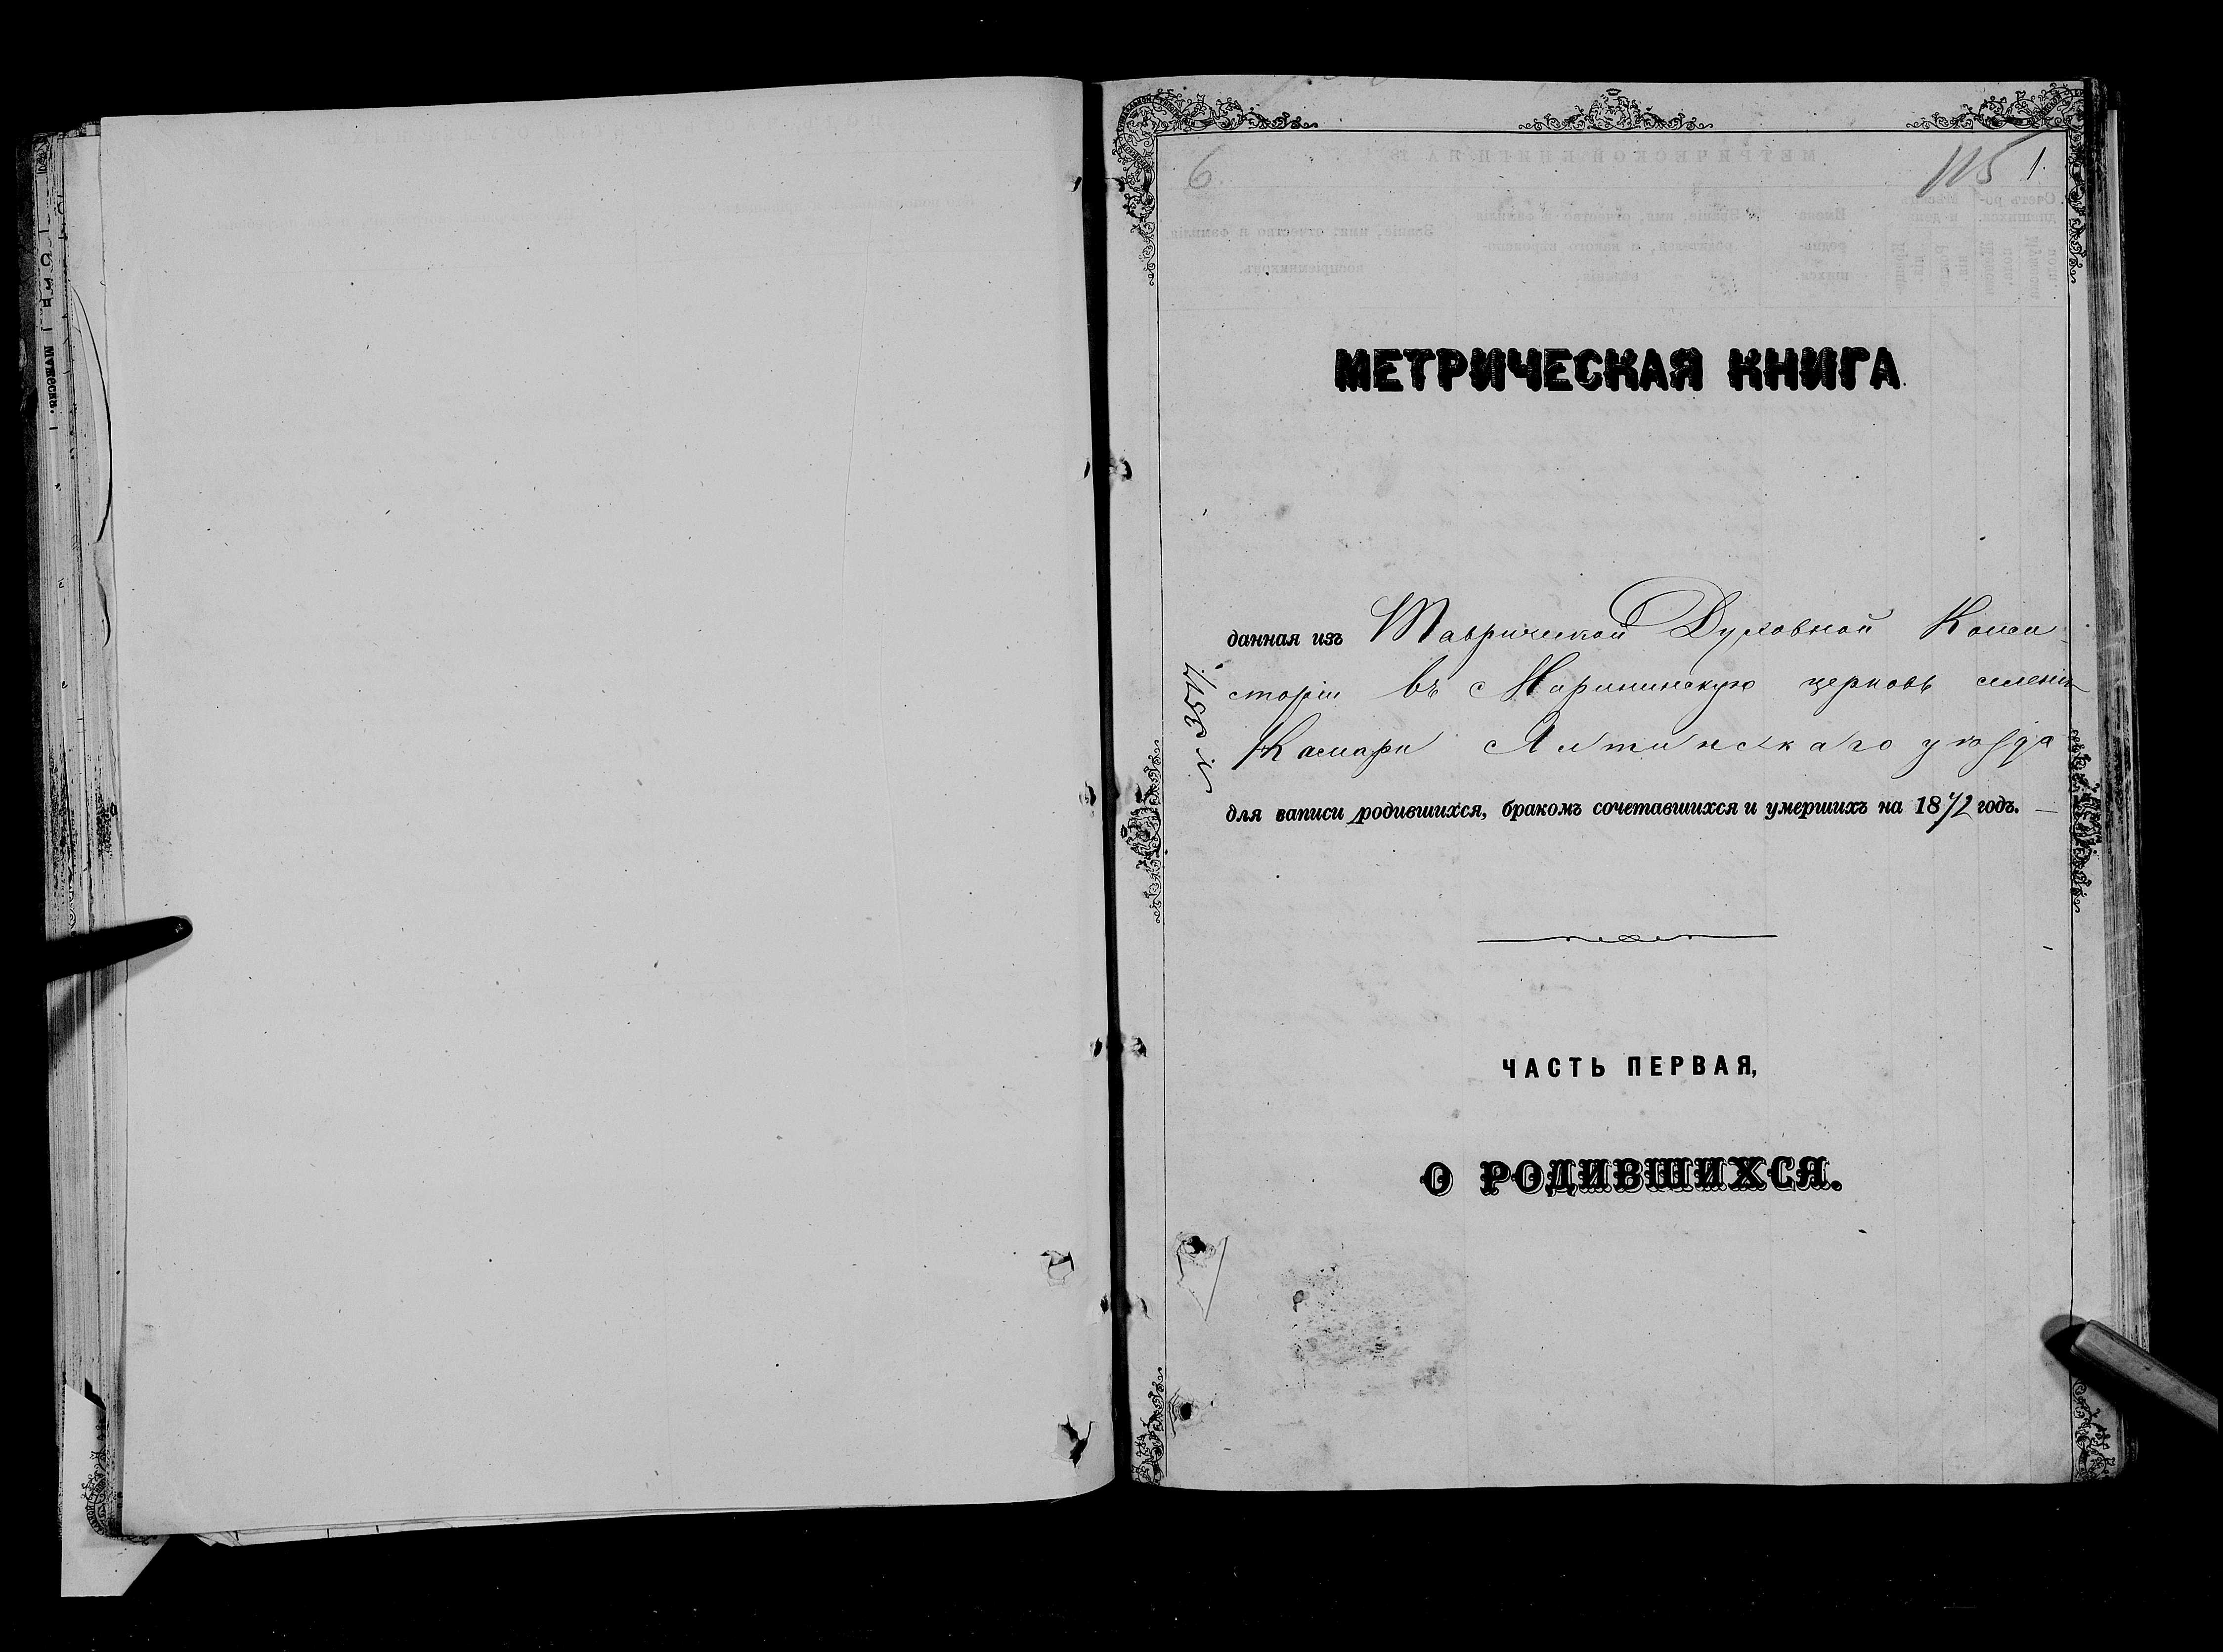 6.
115 1.
МЕТРИЧЕСКАЯ КНИГА
данная изъ Таврической Духовной Конси-
сторіи въ Маринскую церковь
Камары Ялтинскаго уѣзда
для записи родившихся, бракомъ сочетавшихся и умершихъ на 1872 годъ. —
ЧАСТЬ ПЕРВАЯ,
О РОДИВШИХСЯ.